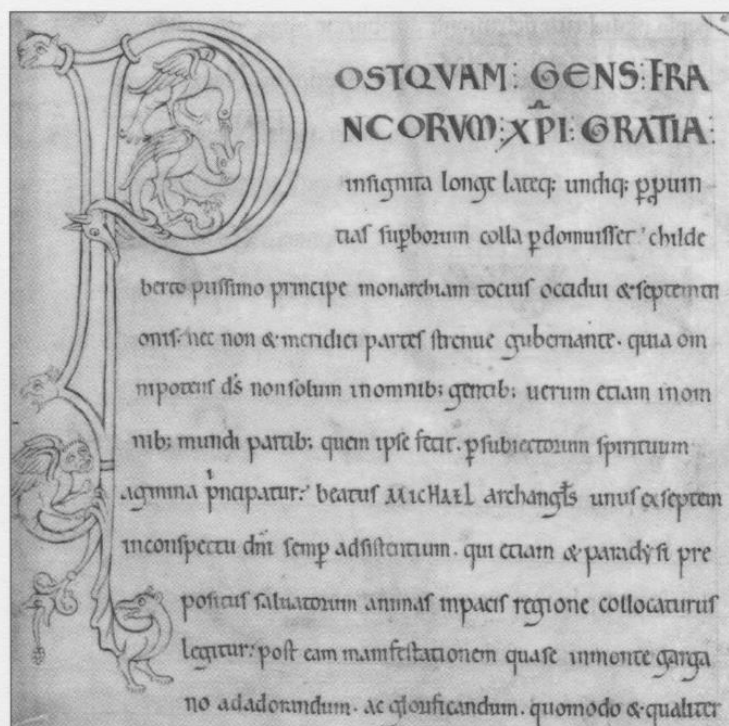 POSTQVAM: GENS: FRA
NCORVM: XPI: GRATIA:
insignita longe lateq; undiq; p puin
tias supborum colla pdomuisset childe
berto piissimo principe monarchiam tocius occidui & septemtri
onis. nec non & meridiei partes strenue gubernante. quia om
nipotens ds non solum in omnib; gentib; uerum etiam in om
nib; mundi partib; quem ipse fecit. p subiectorum spirituum
agmina pncipatur: beatus MICHAEL archangls unus ex septem
in conspectu dni semp adsistentium. qui etiam & paradysi pre
positus saluatorum animas in pacis regione collocaturus
legitur: post eam manifestationem quase in monte garga
no ad adorandum. ac glorificandum. quomodo & qualiter